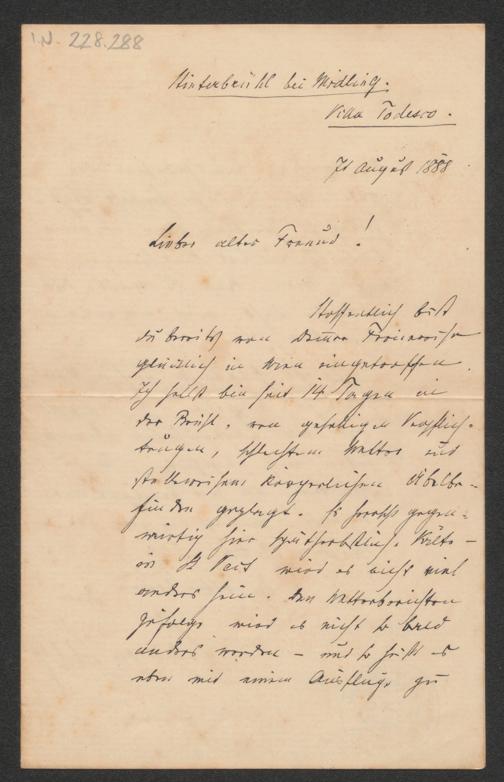 I.N. 228.288
Hinterbrühl bei Mödling.
Villa Todesco.
7t August 1888
Lieber alter Freund!
Hoffentlich bist
du bereits von Deiner Ferienreise
glücklich in Wien eingetroffen.
Ich selbst bin seit 14 Tagen in
der Brühl, von geselligen Verpflich-
tungen, schlechtem Wetter und
stellweisem körperlichen Übelbe-
finden geplagt. Es herrscht gegen-
wärtig hier spätherbstliche Kälte –
in St Veit wird es nicht viel
anders sein. Den Wetterberichten
zufolge wird es nicht so bald
anders werden – und so heißt es
eben mit einem Ausfluge zu